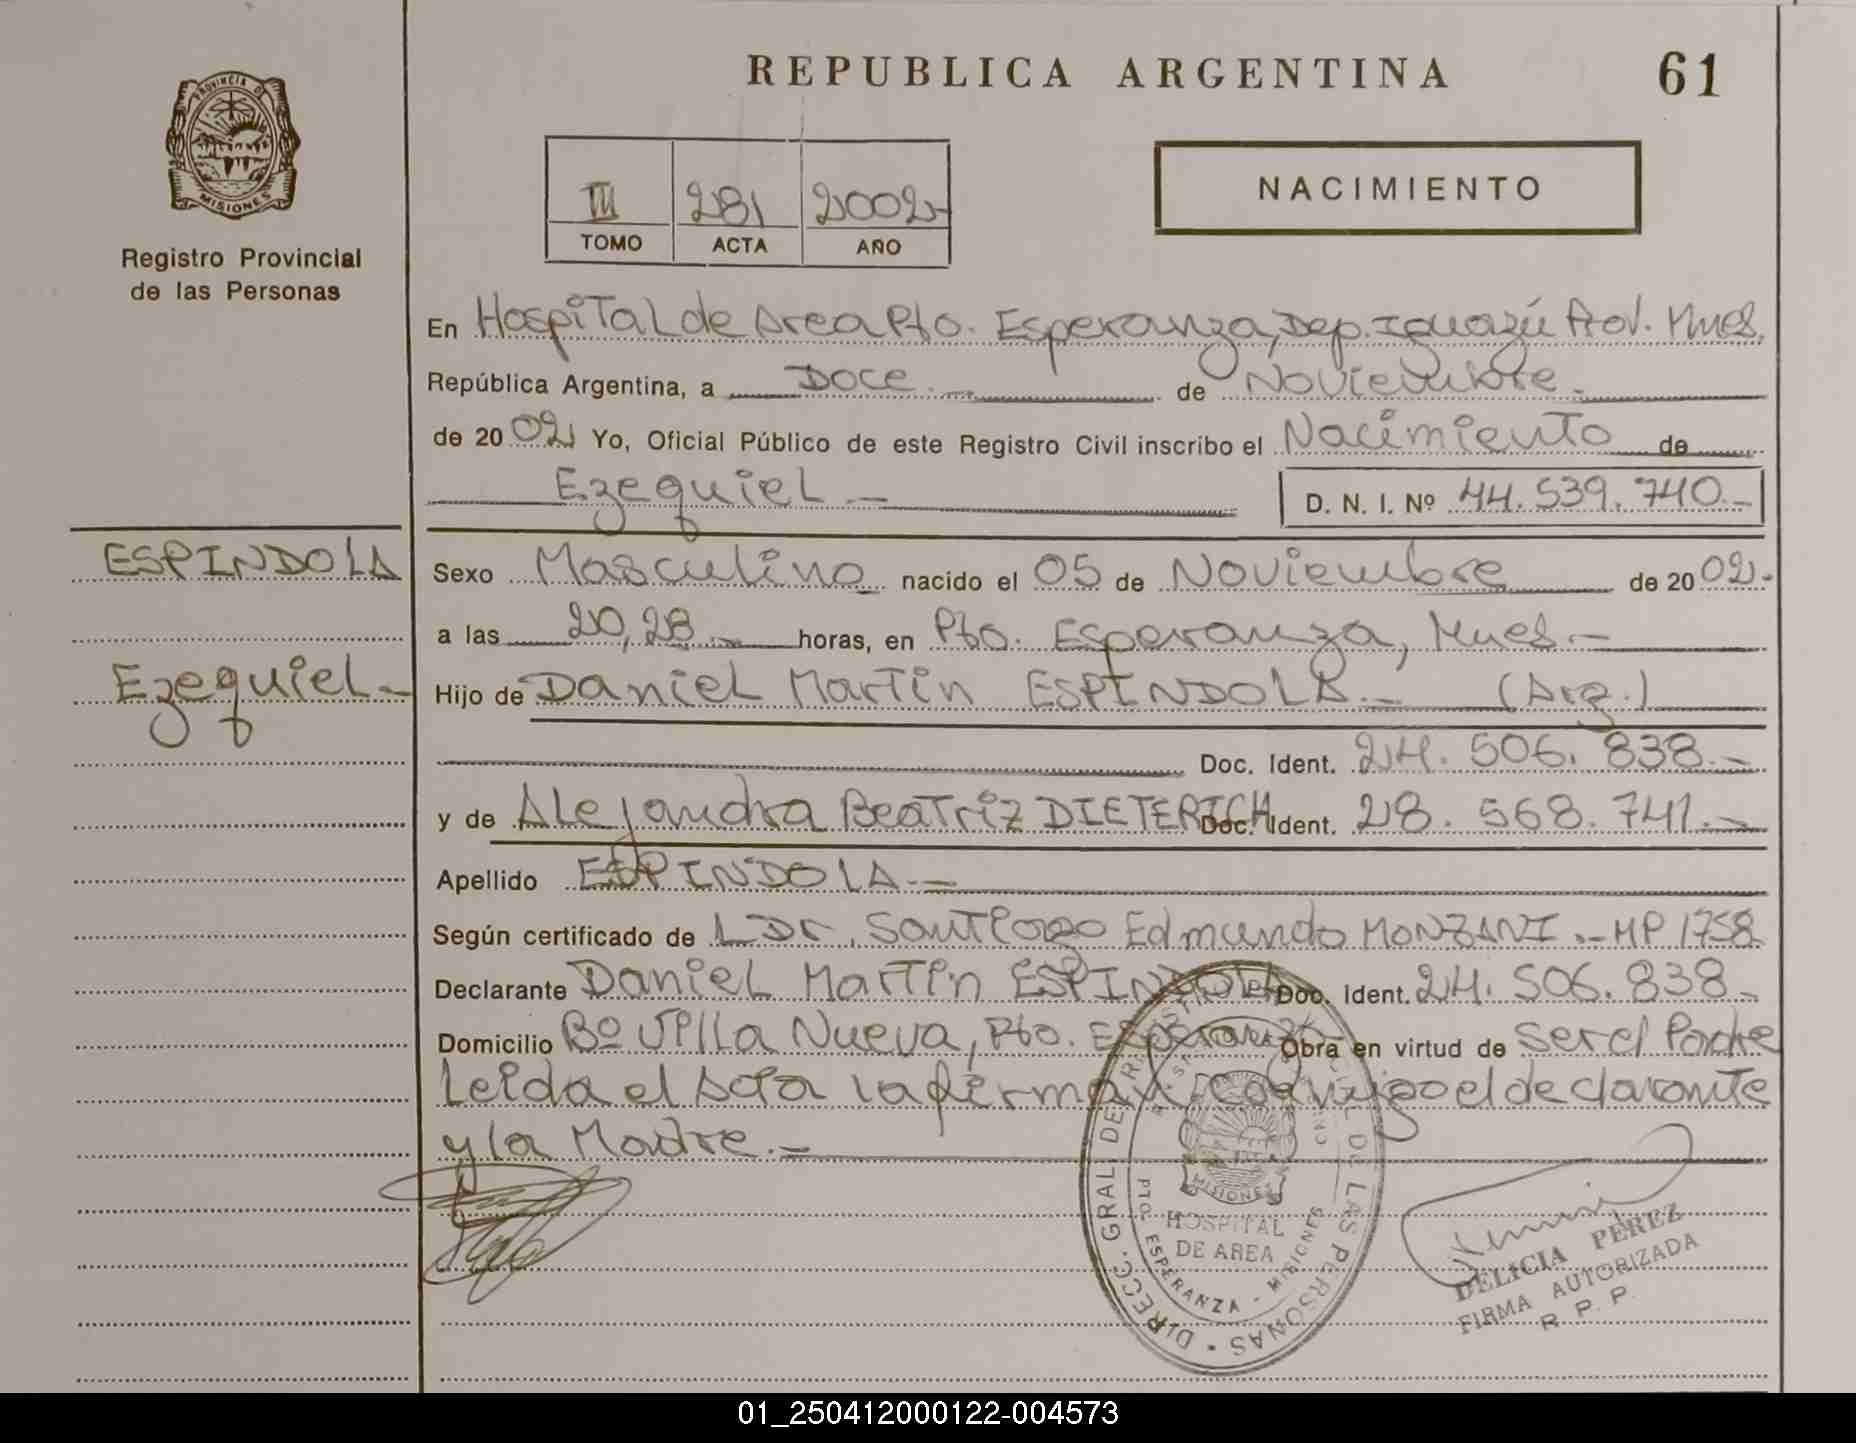 REPUBLICA ARGENTINA
61
PROVINCIA D
MISIONES
Registro Provincial
de las Personas
III 281 2002
TOMO ACTA AÑO
NACIMIENTO
En Hospital de Area Pto. Esperanza, Dep. Iguazú Prov. Mnes.
República Argentina, a Doce.- de Noviembre.-
de 2002 Yo, Oficial Público de este Registro Civil inscribo el Nacimiento de
Ezequiel.- D. N. I. Nº 44.539.740.-
ESPINDOLA
Ezequiel.-
Sexo Masculino nacido el 05 de Noviembre de 2002.-
a las 20,28.- horas, en Pto. Esperanza, Mnes.-
Hijo de Daniel Martin ESPINDOLA.- (Arg.)
Doc. Ident. 24.506.838.-
y de Alejandra Beatriz DIETERICH Doc. Ident. 28.568.741.-
Apellido ESPINDOLA.-
Según certificado de L Dr. Santiago Edmundo MONZANI.- MP 1758
Declarante Daniel Martin ESPINDOLA Doc. Ident. 24.506.838.-
Domicilio Bº Villa Nueva, Pto. Esperanza Obra en virtud de ser el Padre
Leida el Acta la firman conmigo el declarante
y la Madre.-
DIRECC. GRAL. DE REGISTRO PROVINCIAL DE LAS PERSONAS
MISIONES
HOSPITAL
DE AREA
PTO. ESPERANZA - MISIONES
DELICIA PEREZ
FIRMA AUTORIZADA
R. P. P.
01_250412000122-004573